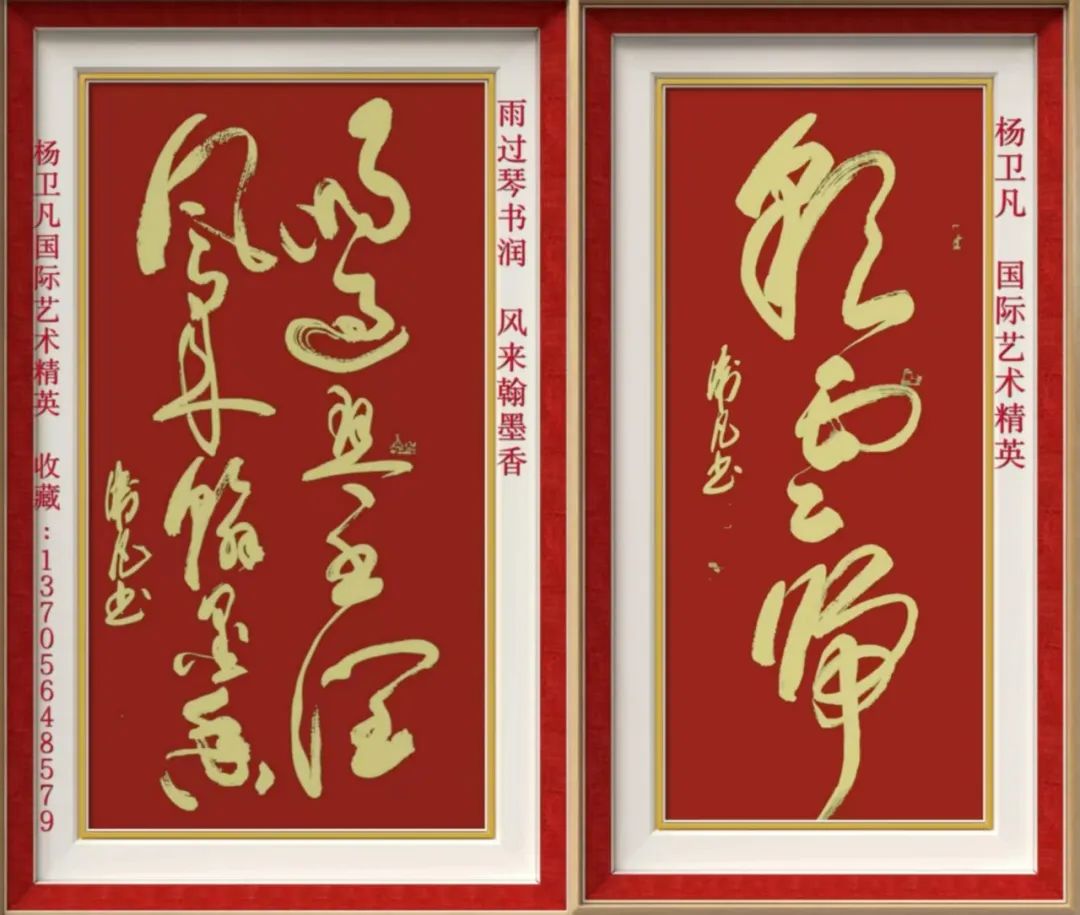 雨过琴书润 风来翰墨香
过琴书润
风来翰墨香
衛凡书
杨卫凡国际艺术精英 收藏:13705648579
杨卫凡 国际艺术精英
衛凡书